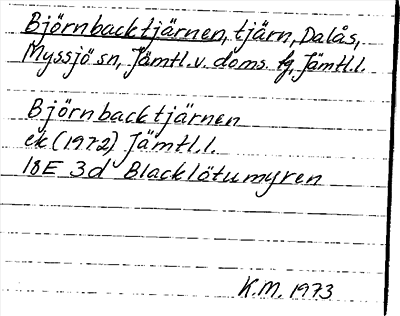 Björnbacktjärnen, tjärn, Dalås,
Myssjö sn, Jämtl.v. doms. tg, Jämtl.l.
Björnbacktjärnen
ek (1972) Jämtl.l.
18E 3d Blacklötumyren
K.M. 1973